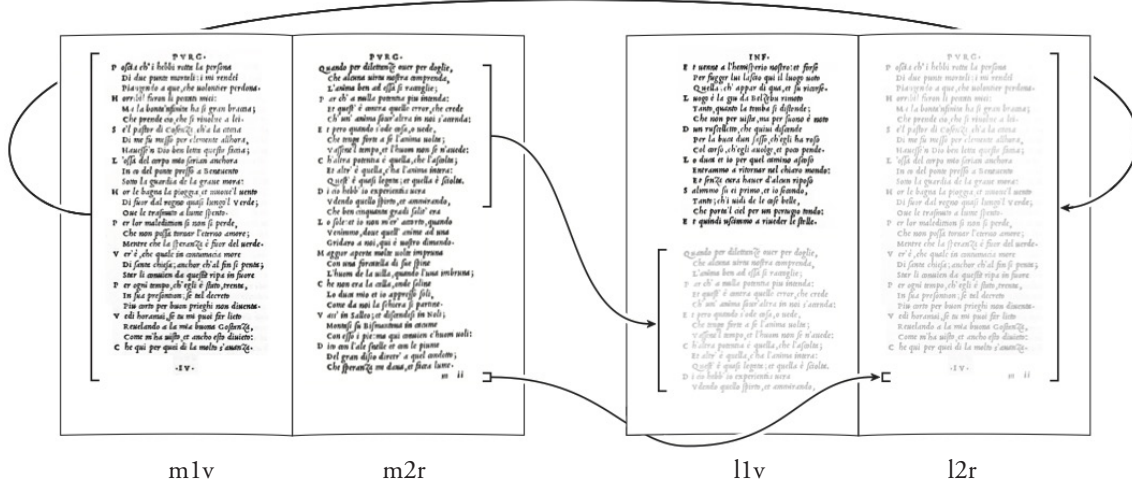 PVRG.
P oscia ch'i hebbi rotta la persona
Di due punte mortali; i mi rendei
Piangendo a que, che uolentier perdona.
H orribil furon li peccati miei:
Ma la bonta'nfinita ha si gran braccia;
Che prende cio, che si riuolue a lei.
S e'l pastor di Cosenza, ch'a la caccia
Di me fu messo per clemente allhora,
Hauesse'n Dio ben letta questa faccia;
L 'ossa del corpo mio serian anchora
In co del ponte presso a Beneuento
Sotto la guardia de la graue mora:
H or le bagna la pioggia, et moue'l uento
Di fuor dal regno quasi lungo'l Verde;
Oue le trasmuto a lume spento.
P er lor maledittion si non si perde,
Che non possa tornar l'eterno amore;
Mentre che la speranza è fuor del uerde.
V er'è, che quale in contumacia more
Di santa chiesa; anchor ch'al fin si penta;
Star li conuien da questa ripa in fuore
P er ogni tempo, ch'egli è stato, trenta,
In sua presontion; se tal decreto
Piu corto per buon prieghi non diuenta.
V edi horamai, se tu mi puoi far lieto
Reuelando a la mia buona Gostanza,
Come m'ha uisto, et ancho esto diuieto:
C he qui per quei di la molto s'auanza.
.IV.
PVRG.
Quando per dilettanze ouer per doglie,
Che alcuna uirtu nostra comprenda,
L'anima ben ad essa si raccoglie;
P ar ch'a nulla potentia piu intenda:
Et quest'è contra quello error, che crede
Ch'un'anima sour'altra in noi s'accenda:
E t pero quando s'ode cosa, o uede,
Che tenga forte a se l'anima uolta;
Vassene'l tempo, et l'huom non se n'auede:
C h'altra potentia è quella, che l'ascolta;
Et altr'è quella, c'ha l'anima intera:
Quest'è quasi legata; et quella è sciolta.
D i cio hebb'io esperientia uera
Vdendo quello spirto, et ammirando,
Che ben cinquanta gradi salit'era
L o sole; et io non m'er'accorto, quando
Venimmo, doue quell'anime ad una
Gridaro a noi, qui è uostro dimando.
M aggior aperta molte uolte impruna
Con una forcatella di sue spine
L'huom de la uilla, quando l'uua imbruna;
C he non era la calla, onde saline
Lo duca mio et io appresso soli,
Come da noi la schiera si partine.
V assi in Sanleo; et discendesi in Noli;
Montasi su Bismantoua in cacume
Con esso i pie: ma qui conuien c'huom uoli:
D ico con l'ale snelle et con le piume
Del gran disio diretr'a quel condotto;
Che speranza mi daua, et facea lume.
m ii
INF.
E t uenne a l'hemisperio nostro: et forse
Per fuggir lui lascio qui il luogo uoto
Quella, ch'appar di qua, et su ricorse.
L uogo è la giu da Belzebu rimoto
Tanto, quanto la tomba si distende;
Che non per uista, ma per suono è noto
D un ruscelletto, che quiui discende
Per la buca dun sasso, ch'egli ha roso
Col corso, ch'egli auolge, et poco pende.
L o duca et io per quel camino ascoso
Entrammo a ritornar nel chiaro mondo:
Et senza cura hauer d'alcun riposo
S alimmo su ei primo, et io secondo,
Tanto; ch'i uidi de le cose belle,
Che porta'l ciel per un pertugio tondo:
E t quindi uscimmo a riueder le stelle.
Quando per dilettanze ouer per doglie,
Che alcuna uirtu nostra comprenda,
L'anima ben ad essa si raccoglie;
P ar ch'a nulla potentia piu intenda:
Et quest'è contra quello error, che crede
Ch'un'anima sour'altra in noi s'accenda:
E t pero quando s'ode cosa, o uede,
Che tenga forte a se l'anima uolta;
Vassene'l tempo, et l'huom non se n'auede:
C h'altra potentia è quella, che l'ascolta;
Et altr'è quella, c'ha l'anima intera:
Quest'è quasi legata; et quella è sciolta.
D i cio hebb'io esperientia uera
Vdendo quello spirto, et ammirando,
PVRG.
P oscia ch'i hebbi rotta la persona
Di due punte mortali; i mi rendei
Piangendo a que, che uolentier perdona.
H orribil furon li peccati miei:
Ma la bonta'nfinita ha si gran braccia;
Che prende cio, che si riuolue a lei.
S e'l pastor di Cosenza, ch'a la caccia
Di me fu messo per clemente allhora,
Hauesse'n Dio ben letta questa faccia;
L 'ossa del corpo mio serian anchora
In co del ponte presso a Beneuento
Sotto la guardia de la graue mora:
H or le bagna la pioggia, et moue'l uento
Di fuor dal regno quasi lungo'l Verde;
Oue le trasmuto a lume spento.
P er lor maledittion si non si perde,
Che non possa tornar l'eterno amore;
Mentre che la speranza è fuor del uerde.
V er'è, che quale in contumacia more
Di santa chiesa; anchor ch'al fin si penta;
Star li conuien da questa ripa in fuore
P er ogni tempo, ch'egli è stato, trenta,
In sua presontion; se tal decreto
Piu corto per buon prieghi non diuenta.
V edi horamai, se tu mi puoi far lieto
Reuelando a la mia buona Gostanza,
Come m'ha uisto, et ancho esto diuieto:
C he qui per quei di la molto s'auanza.
.IV.
m ii
m1v
m2r
l1v
l2r